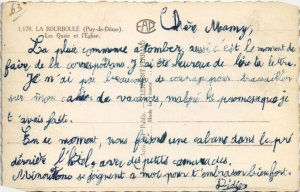 63
1.178. LA BOURBOULE (Puy-de-Dôme).
Les Quais et l'Eglise.
CAP
Chère Mamy,
La pluie commence à tomber, aussi c'est le moment de
faire de la correspondance. J'ai été heureuse de lire ta lettre.
Je n'ai pas beaucoup de courage pour travailler
sur mon cahier de vacances, malgré la promesse que je
t'avais faite.
En ce moment, nous faisons une cabane dans le pré
derrière l'hôtel avec des petits camarades.
se joignent à moi pour t'embrasser bien fort.